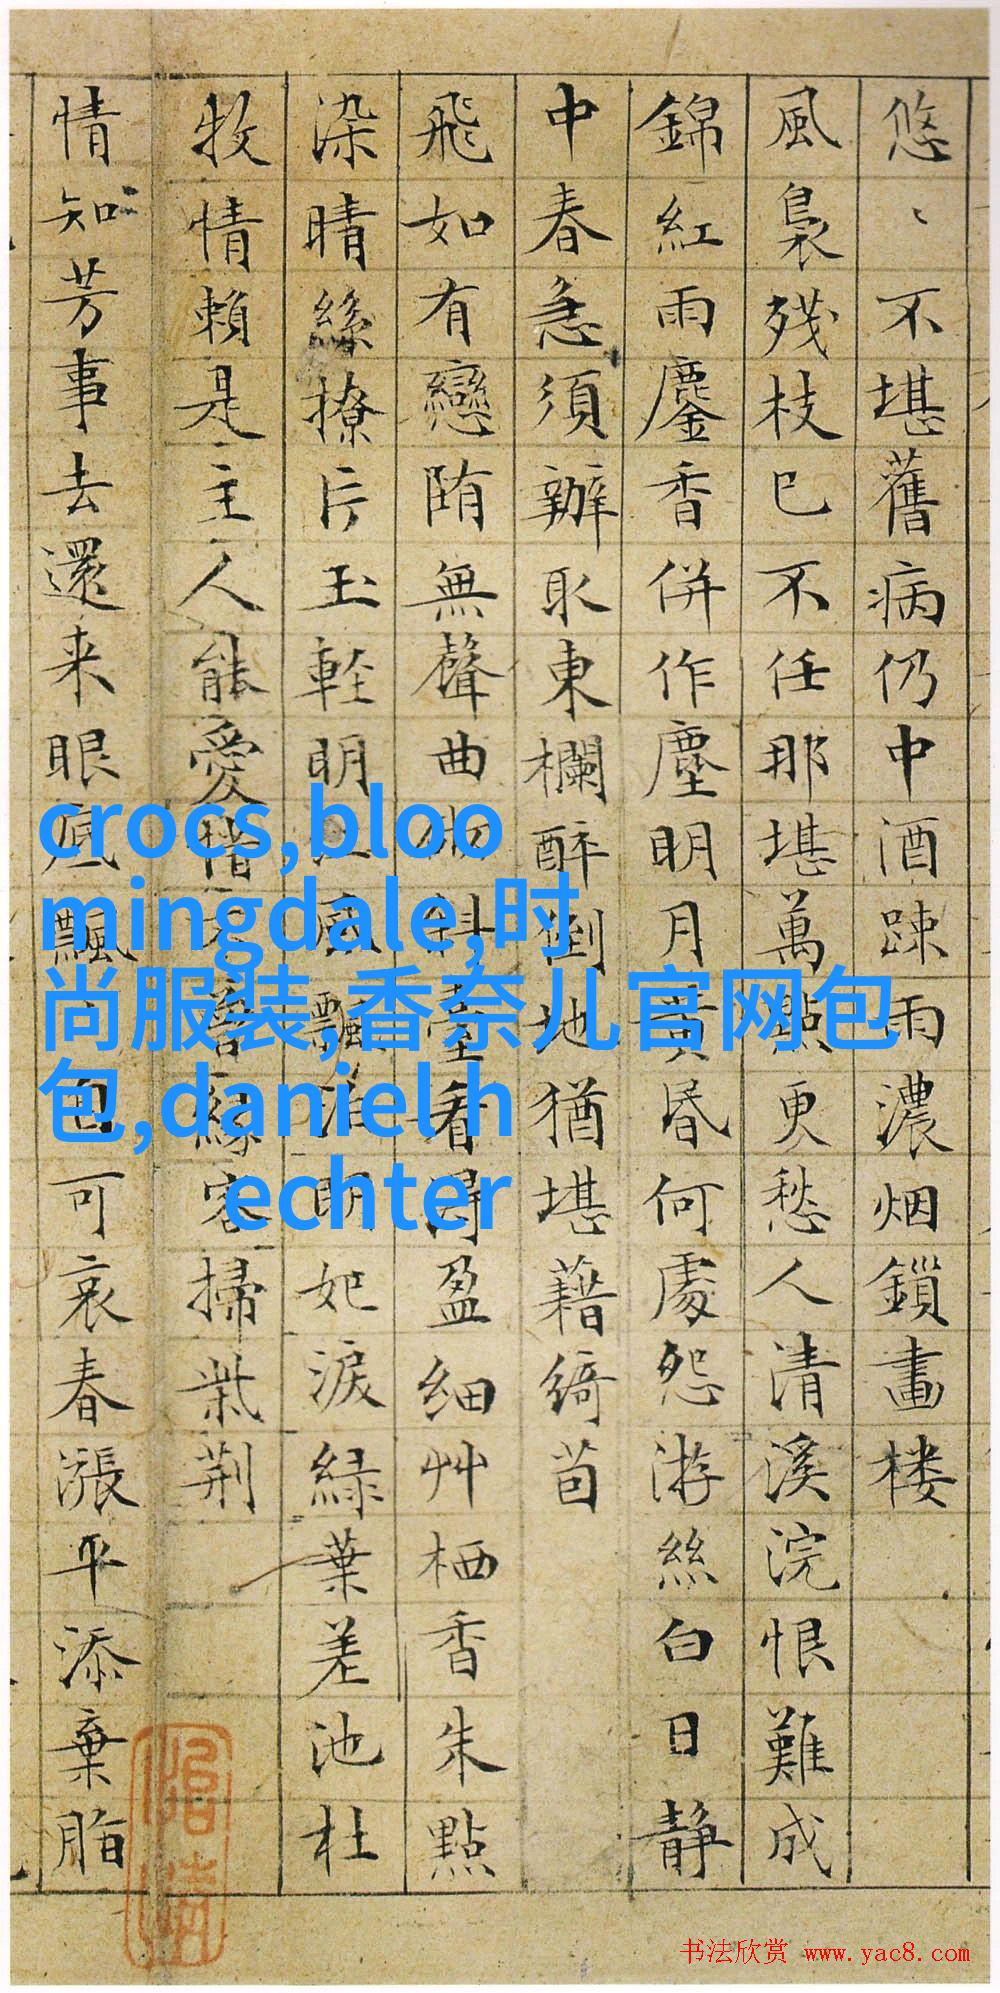 悠〻不堪舊病仍中酒踈雨濃烟鎖畫楼
風裊残枝已不任那堪萬點更愁人清溪浣恨難成
錦紅雨鏖香併作塵明月黄昏何處怨游絲白日静
中春急須辦取東欄醉倒地猶堪藉綺茵
飛如有戀陏無聲曲砌斜臺看得盈細艸栖香朱點
染晴絲撩片玉輕明江風飄泊明妃淚緑葉差池杜
牧情賴是主人能愛惜緣客掃柴荆
情知芳事去還来眼底飄可哀春漲平添棄脂
crocs,bloo
mingdale,时
尚服装,香奈儿官网包
包,danielh
echter
书法欣赏 www.yac8.com